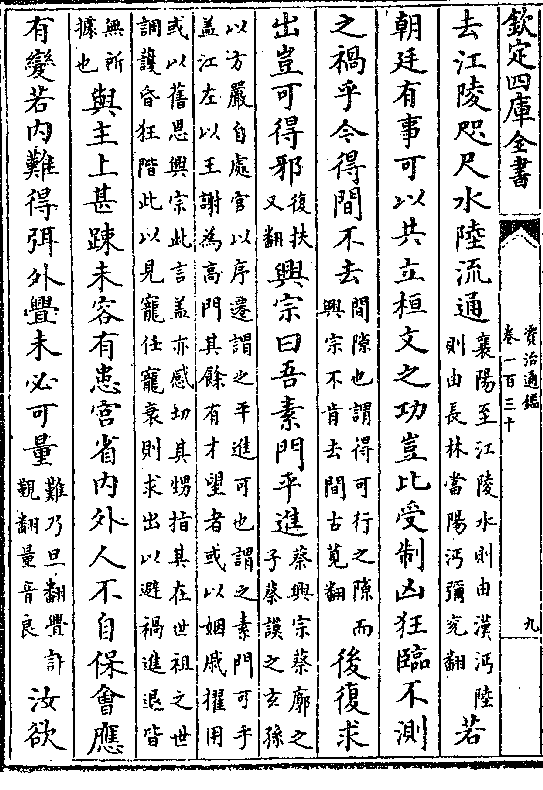 欽定四庫全書
資治通鑑
卷一百三十
九
去江陵咫尺水陸流通襄陽至江陵水則由漢沔陸則由長林當陽沔彌兖翻若
朝廷有事可以共立桓文之功豈比受制凶狂臨不測
之禍乎今得間不去間隙也謂得可行之隙而興宗不肯去間古莧翻後復求
出豈可得邪復扶又翻興宗曰吾素門平進蔡興宗蔡廓之子蔡謨之玄孫
以方嚴自處官以序遷謂之平進可也謂之素門可乎蓋江左以王謝為高門其餘有才望者或以姻戚擢用
或以舊恩興宗此言蓋亦感切其甥指其在世祖之世調護昏狂階此以見寵任寵衰則求出以避禍進退皆
無所據也與主上甚踈未容有患宮省內外人不自保會應
有變若內難得弭外釁未必可量難乃旦翻釁許覲翻量音良汝欲